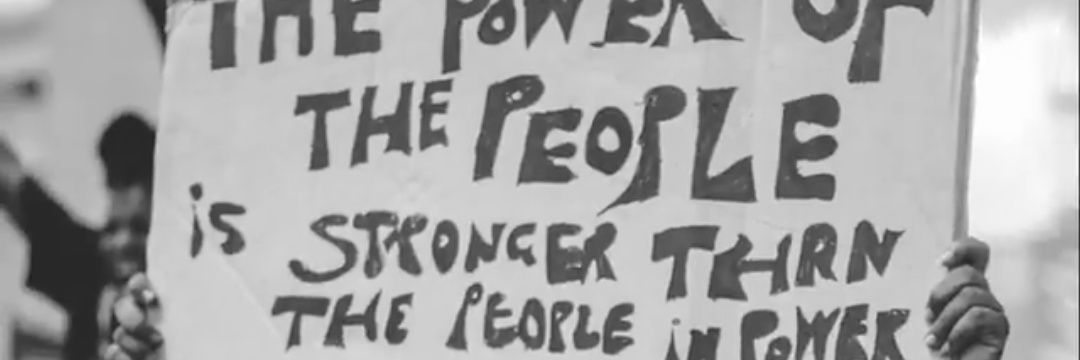 THE POWER OF
THE PEOPLE
is STRONGER THAN
THE PEOPLE in POWER